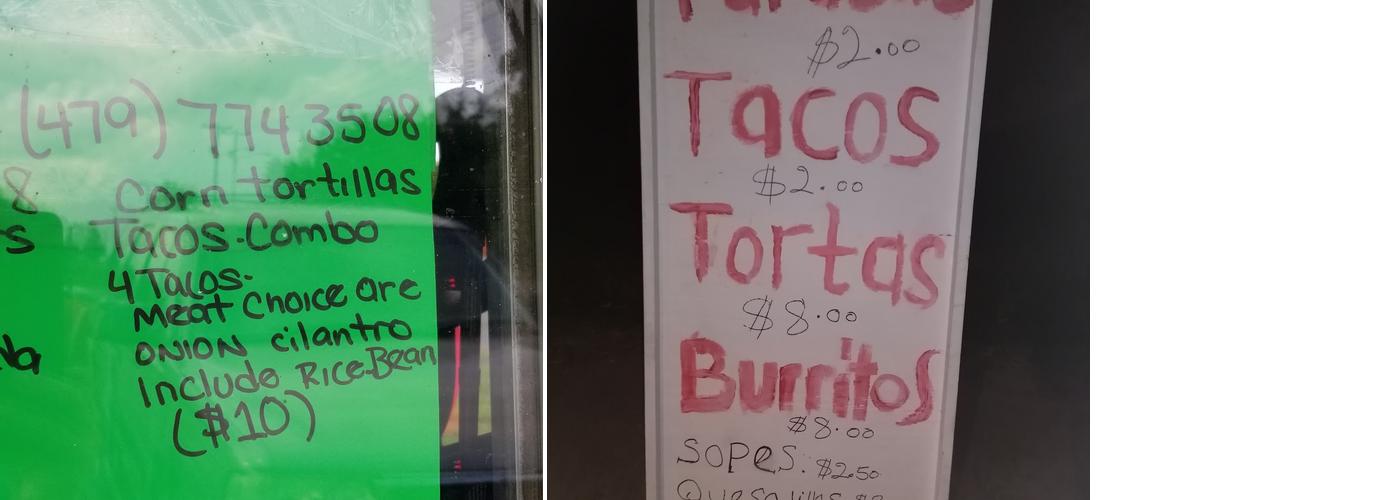 (479) 7743508
8 Corn tortillas
s Tacos-Combo
4 Tacos-
Meat Choice are
ONION cilantro
Include Rice-Bean
($10)
$2.00
Tacos
$2.00
Tortas
$8.00
Burritos
$8.00
SOPES. $2.50